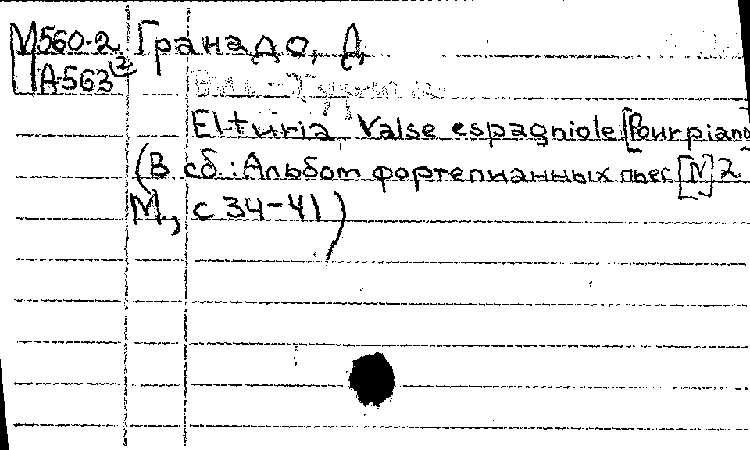 М560-2 Гранадо, Д.
А-563 (2)
Elturia Valse espagniole [Pour piano
(В сб.: Альбом фортепианных пьес [N] 2
М., с 34-41)